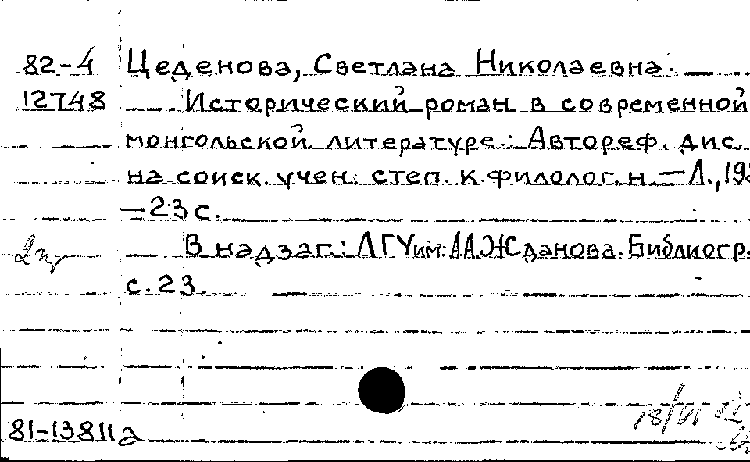 82-4 Цеденова, Светлана Николаевна.
12748 Исторический роман в современной
монгольской литературе: Автореф. дис.
на соиск. учен. степ. к. филолог. н. — Л., 19
— 23 с.
2 пр В надзаг.: ЛГУ им. А.А. Жданова. Библиогр.
с. 23.
81-13811а